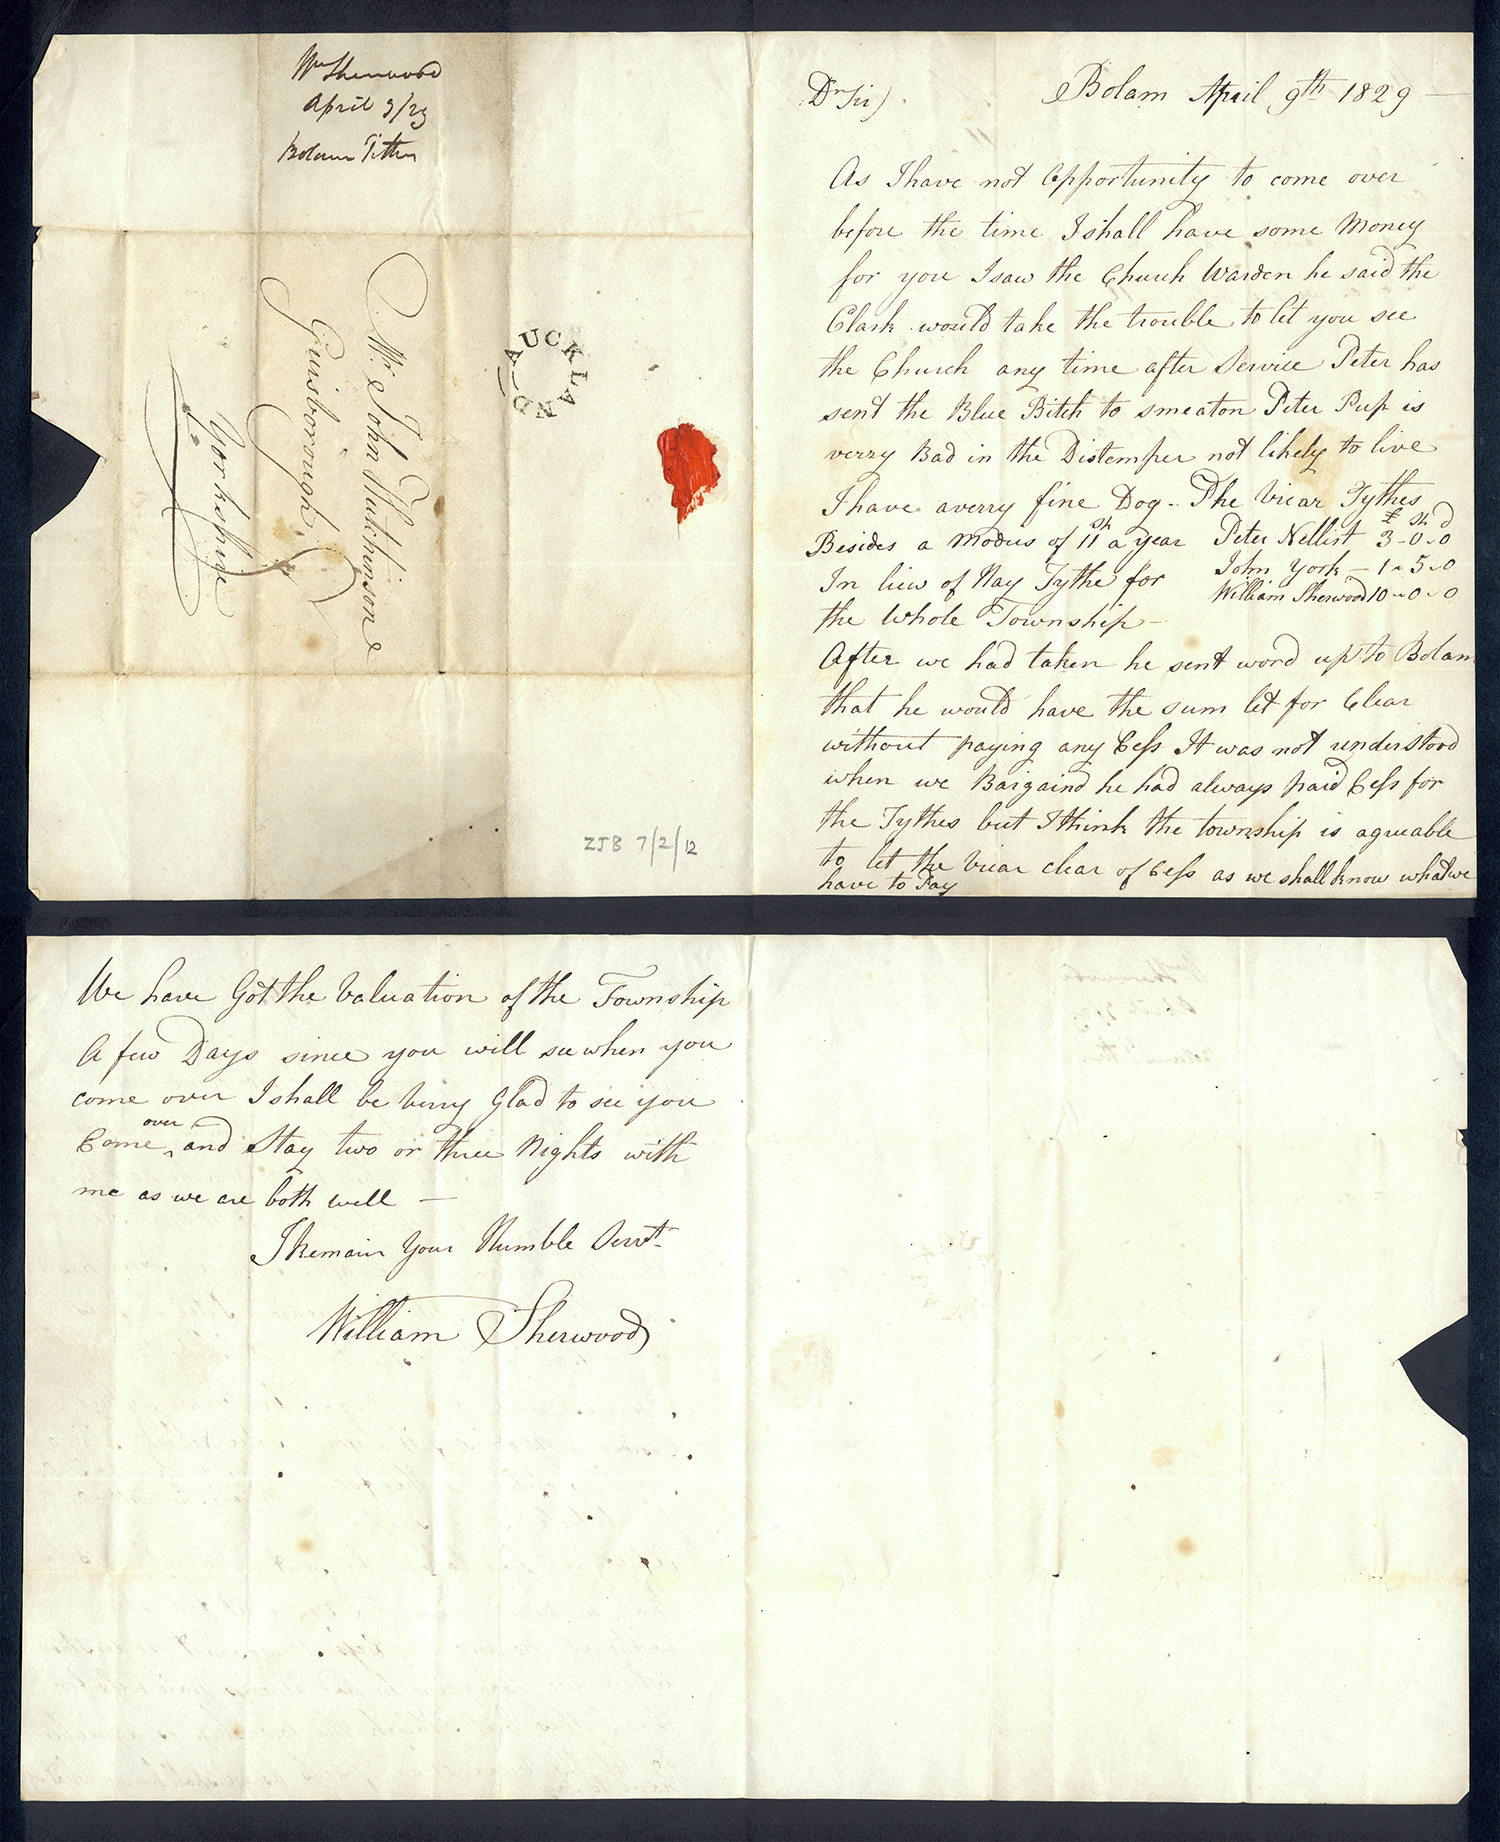 Wm Sherwood
April 9/29
Bolam Tithes
Mr. John Hutchinson
Guisborough
Yorkshire
AUCKLAND
ZJB 7/2/12
Dr Sir) Bolam April 9th 1829
As I have not Opportunity to come over
before the time I shall have some Money
for you I saw the Church Warden he said the
Clark would take the trouble to let you see
the Church any time after Service Peter has
sent the Blue Bitch to smeaton Peter Pup is
verry Bad in the Distemper not likely to live
I have a verry fine Dog - The Vicar Tythes
£ Sh D
Besides a Modus of 11 Sh a year Peter Nellist 3-0-0
In liew of Hay Tythe for John York - 1-5-0
the Whole Township - William Sherwood 10-0-0
After we had taken he sent word up to Bolam
that he would have the sum let for Clear
without paying any Cess It was not understood
when we Bargaind he had always paid Cess for
the Tythes but I think the township is agreable
to let the Vicar clear of Cess as we shall know what we
have to Pay
We have Got the Valuation of the Township
A few Days since you will see when you
come over I shall be Verry Glad to see you
Come over and Stay two or three Nights with
me as we are both well -
I Remain Your Humble Servt.
William Sherwood